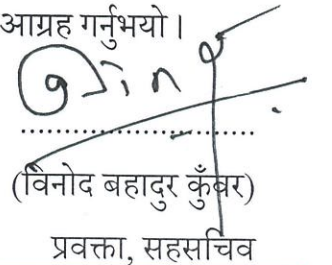 आग्रह गर्नुभयो।
(विनोद बहादुर कुँवर)
प्रवक्ता, सहसचिव